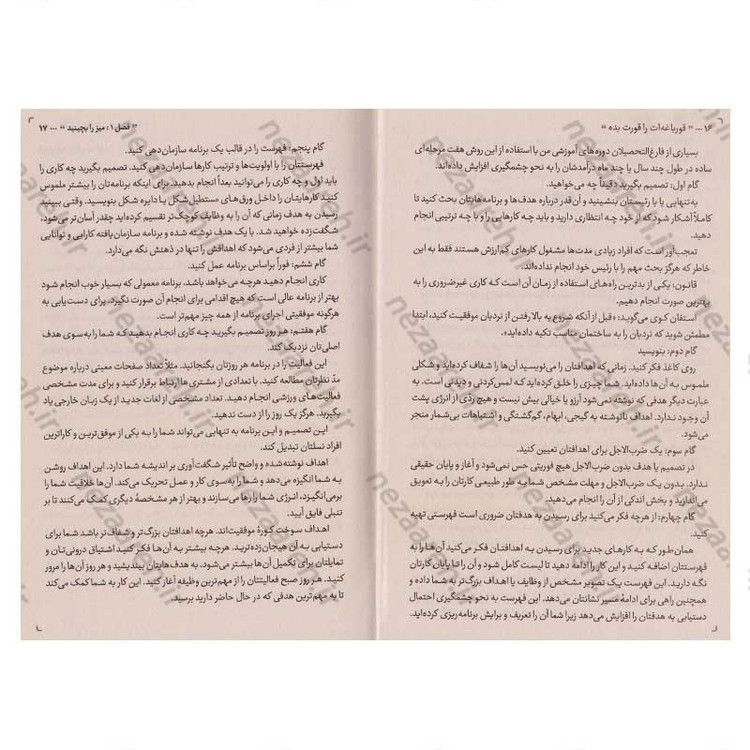 ۱۶ ... " قورباغه‌ات را قورت بده "
بسیاری از فارغ‌التحصیلان دوره‌های آموزشی من با استفاده از این روش هفت مرحله‌ای
ساده در طول چند سال یا چند ماه درآمدشان را به نحو چشمگیری افزایش داده‌اند.
گام اول: تصمیم بگیرید دقیقاً چه می‌خواهید.
به‌تنهایی یا با رئیستان بنشینید و آن‌قدر درباره هدف‌ها و برنامه‌هایتان بحث کنید تا
کاملاً آشکار شود که از خود چه انتظاری دارید و باید چه کارهایی را و با چه ترتیبی انجام
دهید.
تعجب‌آور است که افراد زیادی مدت‌ها مشغول کارهای کم‌ارزش هستند فقط به این
خاطر که هرگز بحث مهم را با رئیس خود انجام نداده‌اند.
قانون: یکی از بدترین راه‌های استفاده از زمان آن است که کاری غیرضروری را به
بهترین صورت انجام دهیم.
استفان کوی می‌گوید: «قبل از آنکه شروع به بالا رفتن از نردبان موفقیت کنید، ابتدا
مطمئن شوید که نردبان را به ساختمان مناسب تکیه داده‌اید».
گام دوم: بنویسید
روی کاغذ فکر کنید. زمانی که اهدافتان را می‌نویسید آن‌ها را شفاف کرده‌اید و شکلی
ملموس به آن‌ها داده‌اید. شما چیزی را خلق کرده‌اید که لمس‌کردنی و دیدنی است. به
عبارت دیگر هدفی که نوشته نمی‌شود آرزو یا خیالی بیش نیست و هیچ ردّی از انرژی پشت
آن وجود ندارد. اهداف نانوشته به گیجی، ابهام، گم‌گشتگی و اشتباهات بی‌شمار منجر
می‌شود.
گام سوم: یک ضرب‌الاجل برای اهدافتان تعیین کنید.
در تصمیم یا هدف بدون ضرب‌الاجل هیچ فوریتی حس نمی‌شود و آغاز و پایان حقیقی
ندارد. بدون یک ضرب‌الاجل و مهلت مشخص شما به طور طبیعی کارتان را به تعویق
می‌اندازید و بخش اندکی از آن را انجام می‌دهید.
گام چهارم: از هرچه فکر می‌کنید برای رسیدن به هدفتان ضروری است فهرستی تهیه
کنید.
همان‌طور که به کارهای جدید برای رسیدن به اهدافتان فکر می‌کنید آن‌ها را به
فهرستتان اضافه کنید و این کار را ادامه دهید تا لیست کامل شود و آن را تا پایان کارتان
نگه دارید. این فهرست یک تصویر مشخص از وظایف یا اهداف بزرگ‌تر به شما داده و
همچنین راهی برای ادامهٔ مسیر نشانتان می‌دهد. این فهرست به نحو چشمگیری احتمال
دستیابی به هدفتان را افزایش می‌دهد زیرا شما آن را تعریف و برایش برنامه‌ریزی کرده‌اید.
" فصل ۱: میز را بچینید " ... ۱۷
گام پنجم: فهرست را در قالب یک برنامه سازمان‌دهی کنید.
فهرستتان را با اولویت‌ها و ترتیب کارها سازمان‌دهی کنید. تصمیم بگیرید چه کاری را
باید اول و چه کاری را می‌توانید بعداً انجام بدهید. برای اینکه برنامه‌تان را بیشتر ملموس
کنید کارهایتان را داخل ورق‌های مستطیل‌شکل یا دایره شکل بنویسید. وقتی ببینید
رسیدن به هدف زمانی که آن را به وظایف کوچک‌تر تقسیم کرده‌اید چقدر آسان‌تر می‌شود،
شگفت‌زده خواهید شد. با یک هدف نوشته شده و برنامه سازمان‌یافته کارایی و توانایی
شما بیشتر از فردی می‌شود که اهدافش را تنها در ذهنش نگه می‌دارد.
گام ششم: فوراً براساس برنامه عمل کنید.
کاری انجام دهید هرچه می‌خواهد باشد. برنامه معمولی که بسیار خوب انجام شود
بهتر از برنامه عالی است که هیچ اقدامی برای انجام آن صورت نگیرد. برای دست‌یابی به
هرگونه موفقیتی اجرای برنامه از همه چیز مهم‌تر است.
گام هفتم: هر روز تصمیم بگیرید چه کاری انجام بدهید که شما را به‌سوی هدف
اصلی‌تان نزدیک کند.
این فعالیت را در برنامه هر روزتان بگنجانید. مثلاً تعداد صفحات معینی درباره موضوع
مدّ نظرتان مطالعه کنید. با تعدادی از مشتری‌ها ارتباط برقرار کنید و برای مدت مشخصی
فعالیت‌های ورزشی انجام دهید. تعداد مشخصی از لغات جدید از یک زبان خارجی یاد
بگیرید. هرگز یک روز را از دست ندهید.
این تصمیم و این برنامه به تنهایی می‌تواند شما را به یکی از موفق‌ترین و کاراترین
افراد نسلتان تبدیل کند.
اهداف نوشته‌شده و واضح تأثیر شگفت‌آوری بر اندیشه شما دارد. این اهداف روشن
به شما انگیزه می‌دهد و شما را به‌سوی کار و عمل تحریک می‌کند. آن‌ها خلاقیت شما را
برمی‌انگیزد، انرژی شما را رها می‌سازند و بهتر از هر مشخصهٔ دیگری کمک می‌کنند تا بر
تنبلی فایق آیید.
اهداف سوخت کورهٔ موفقیت‌اند. هرچه اهدافتان بزرگ‌تر و شفاف‌تر باشد شما برای
دستیابی به آن هیجان‌زده‌ترید. هرچه بیشتر به آن‌ها فکر کنید اشتیاق درونی‌تان و
تمایلتان برای تکمیل آن‌ها بیشتر می‌شود. به هدف‌هایتان بیندیشید و هر روز آن‌ها را مرور
کنید. هر روز صبح فعالیتتان را از مهم‌ترین وظیفه آغاز کنید. این کار به شما کمک می‌کند
تا به مهم‌ترین هدفی که در حال حاضر دارید برسید.